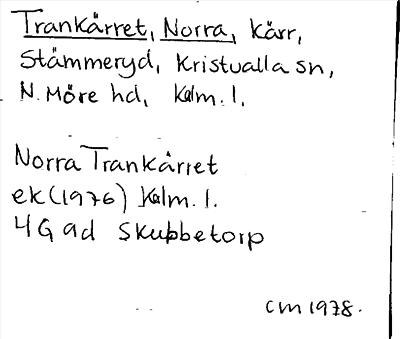 Trankärret, Norra, kärr,
Stämmeryd, Kristvalla sn,
N. Möre hd, Kalm. l.
Norra Trankärret
ek (1976) Kalm. l.
4G 9d Skubbetorp
CM 1978.